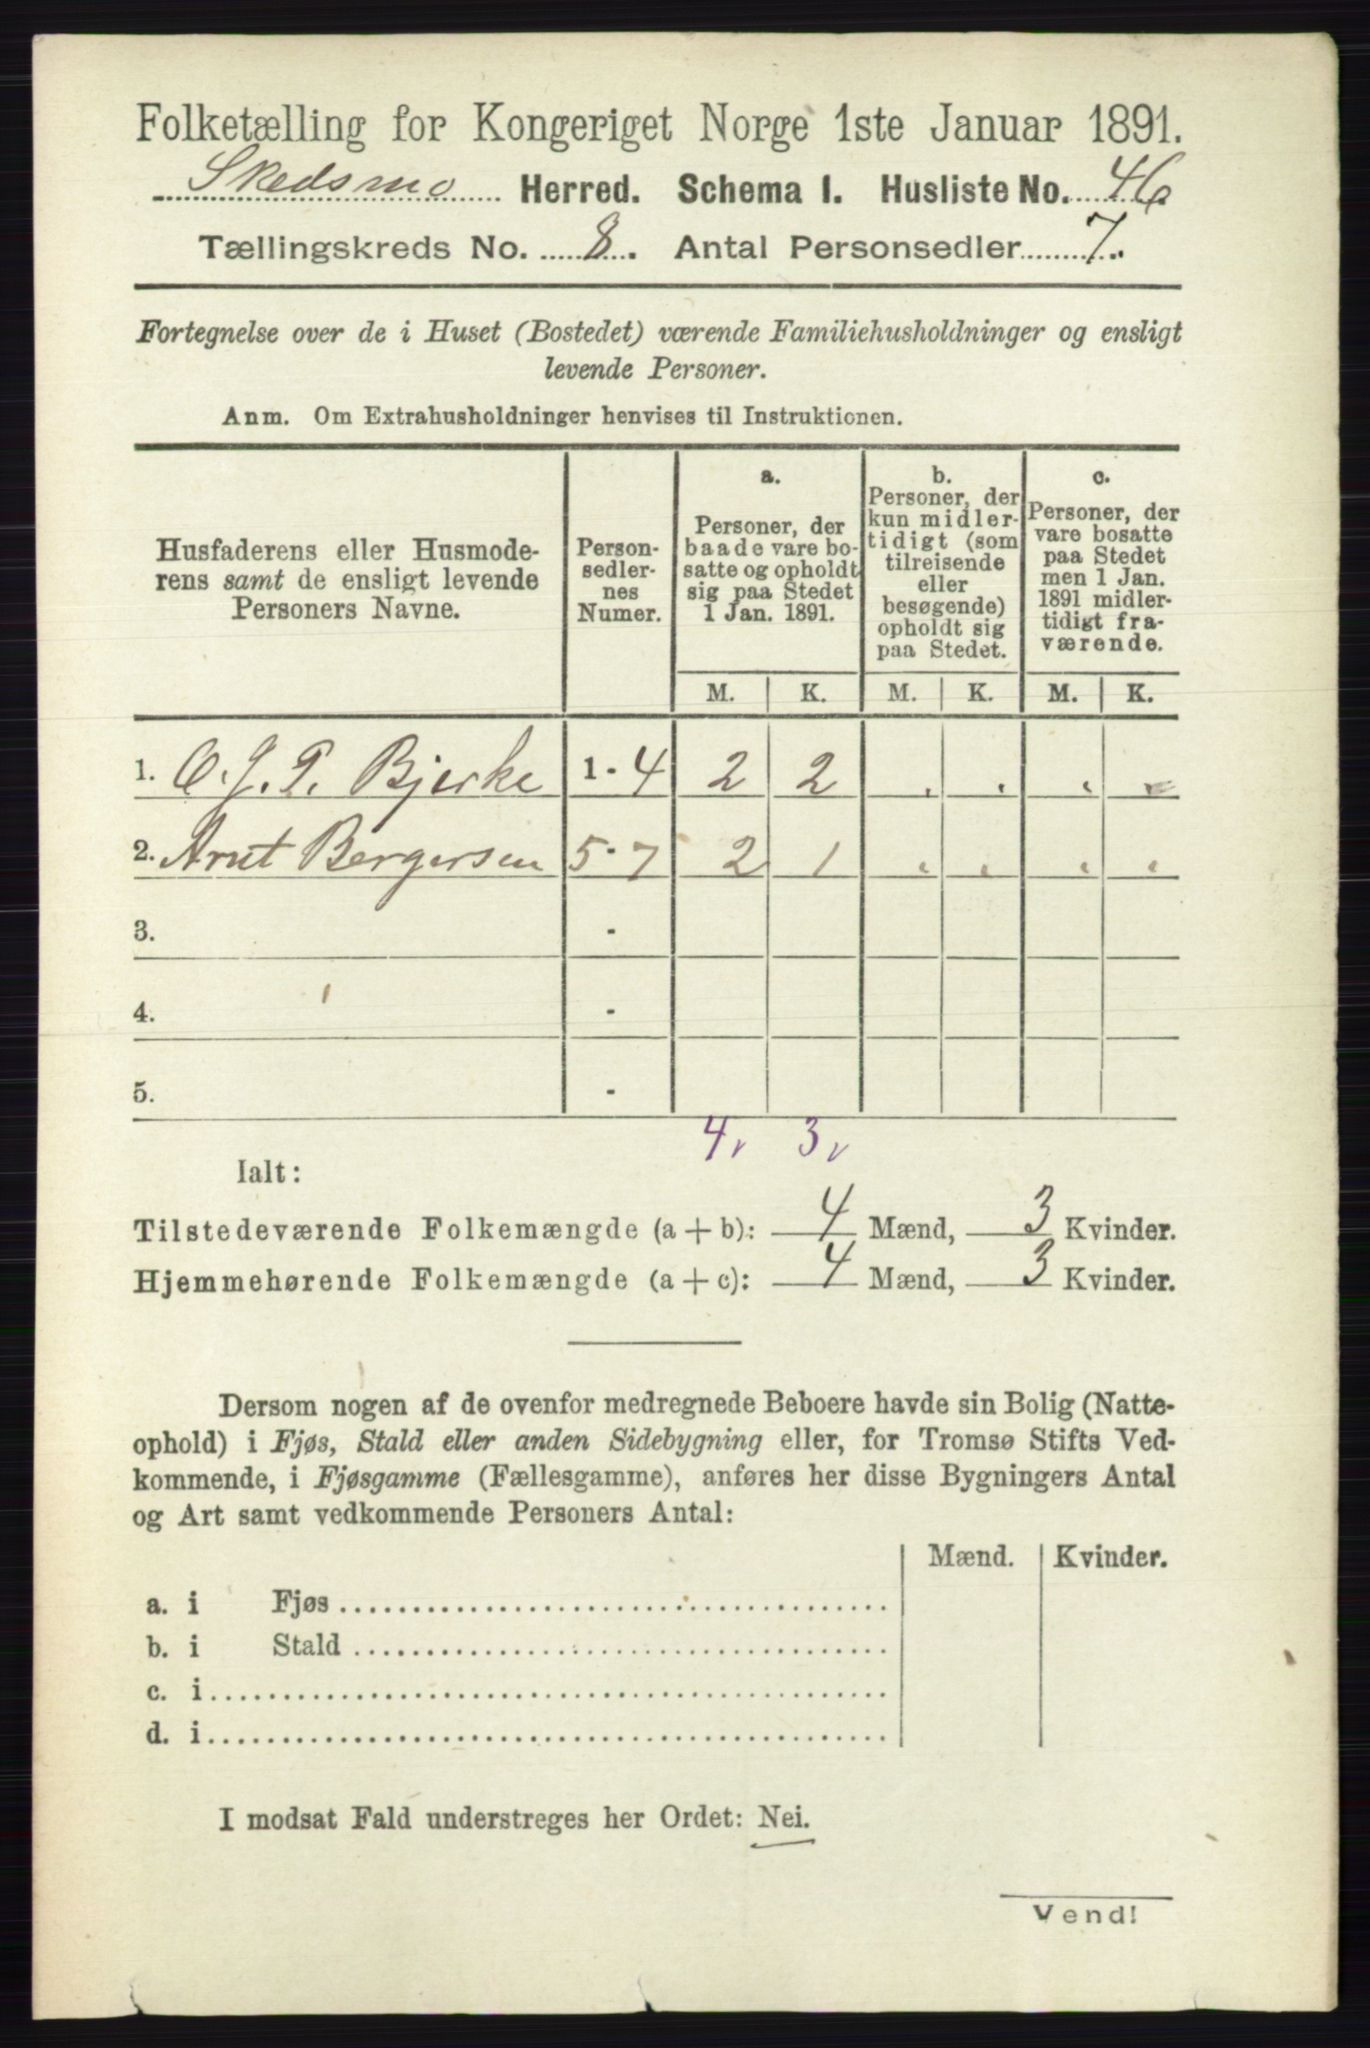 Folketælling for Kongeriget Norge 1ste Januar 1891.
Skedsmo Herred. Schema I. Husliste No. 46
Tællingskreds No. 8. Antal Personsedler 7.
Fortegnelse over de i Huset (Bostedet) værende Familiehusholdninger og ensligt
levende Personer.
Anm. Om Extrahusholdninger henvises til Instruktionen.
Husfaderens eller Husmode-
rens samt de ensligt levende
Personers Navne.
Person-
sedler-
nes
Numer.
a.
Personer, der
baade vare bo-
satte og opholdt
sig paa Stedet
1 Jan. 1891.
b.
Personer, der
kun midler-
tidigt (som
tilreisende
eller
besøgende)
opholdt sig
paa Stedet.
c.
Personer, der
vare bosatte
paa Stedet
men 1 Jan.
1891 midler-
tidigt fra-
værende.
M. K. M. K. M. K.
1. O. J. P. Bjerke 1 - 4 2 2 . . . .
2. Arnt Bergersen 5 - 7 2 1 . . . .
3. -
4. -
5. -
4 3
Ialt:
Tilstedeværende Folkemængde (a + b): 4 Mænd, 3 Kvinder.
Hjemmehørende Folkemængde (a + c): 4 Mænd, 3 Kvinder.
Dersom nogen af de ovenfor medregnede Beboere havde sin Bolig (Natte-
ophold) i Fjøs, Stald eller anden Sidebygning eller, for Tromsø Stifts Ved-
kommende, i Fjøsgamme (Fællesgamme), anføres her disse Bygningers Antal
og Art samt vedkommende Personers Antal:
Mænd. Kvinder.
a. i Fjøs
b. i Stald
c. i
d. i
I modsat Fald understreges her Ordet: Nei.
Vend!